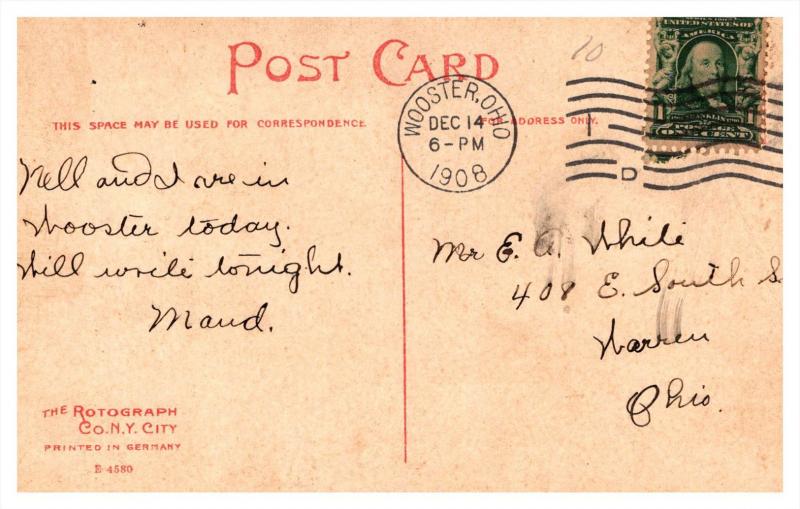 POST CARD
THIS SPACE MAY BE USED FOR CORRESPONDENCE
FOR ADDRESS ONLY.
10
UNITED STATES OF
AMERICA
1
FRANKLIN
POSTAGE
ONE CENT
WOOSTER, OHIO
DEC 14
6-PM
1908
D
Nell and I are in
Wooster today.
Will write tonight.
Maud.
Mr E. A. White
408 E. South S
Warren
Ohio.
THE ROTOGRAPH
CO. N.Y. CITY
PRINTED IN GERMANY
E 4580